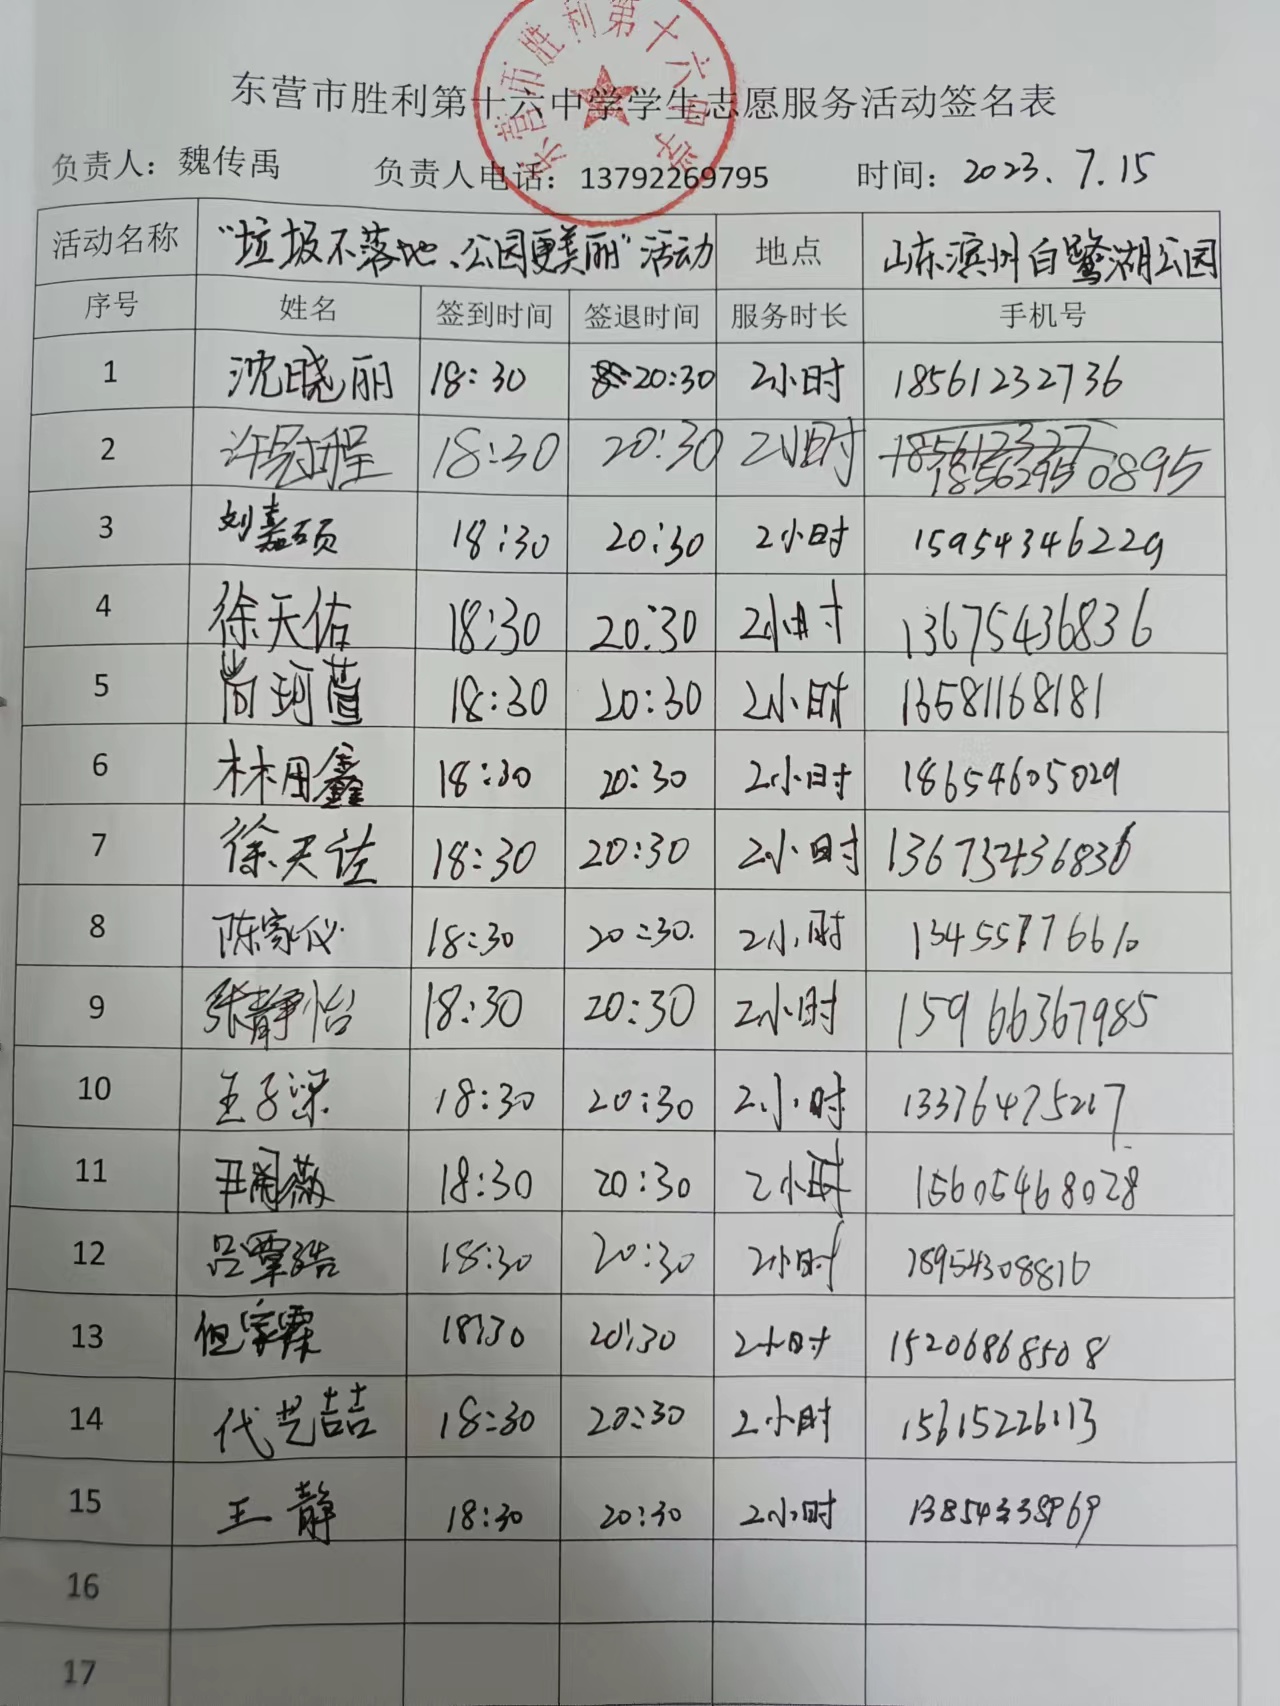 东营市胜利第十六中学
东营市胜利第十六中学学生志愿服务活动签名表
负责人：魏传禹 负责人电话：13792269795 时间：2023.7.15
活动名称 “垃圾不落地、公园更美丽”活动 地点 山东滨州白鹭湖公园
序号 姓名 签到时间 签退时间 服务时长 手机号
1 沈晓丽 18:30 20:30 2小时 18561232736
2 许冠程 18:30 20:30 2小时 18562950895
3 刘嘉硕 18:30 20:30 2小时 15954346229
4 徐天佑 18:30 20:30 2小时 13675436836
5 尚珂萱 18:30 20:30 2小时 13581168181
6 林用鑫 18:30 20:30 2小时 18654605029
7 徐天佐 18:30 20:30 2小时 13675436836
8 陈家仪 18:30 20:30. 2小时 13455776610
9 张静怡 18:30 20:30 2小时 15966367985
10 王子梁 18:30 20:30 2小时 13376475217
11 18:30 20:30 2小时 15605468028
12 吕覃皓 18:30 20:30 2小时 18954308810
13 但家霖 18:30 20:30 2小时 15206868508
14 代艺喆 18:30 20:30 2小时 15615226113
15 王静 18:30 20:30 2小时
16
17